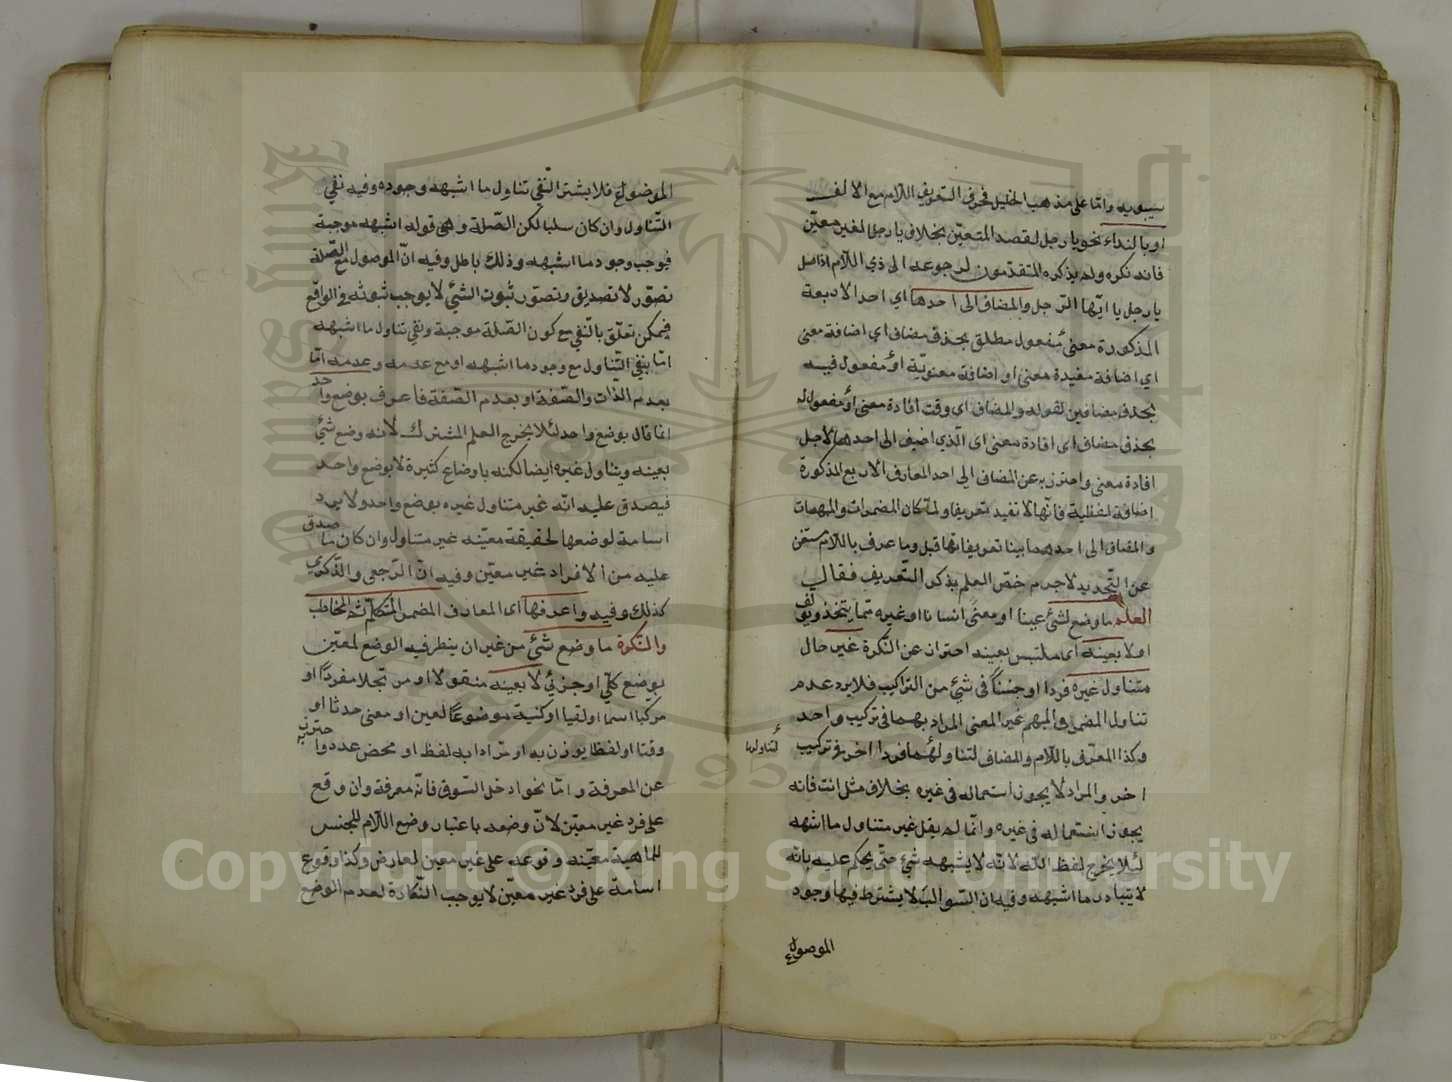 سيبويه واما على مذهب الخليل فحرف التعريف اللام مع الالف
او بالنداء نحو يا رجل لقصد المتعين بخلاف يا رجلا لغير معين
فانه نكره ولم يذكره المتقدمون لرجوعه الى ذي اللام اذ اصل
يا رجل يا ايها الرجل والمضاف الى احدها اي احد الاربعة
المذكورة معنى مفعول مطلق بحذف مضاف اي اضافة معنى
اي اضافة مفيدة معنى او اضافة معنوية او مفعول فيه
بحذف مضافين لقوله والمضاف اي وقت افادة معنى او مفعول له
بحذف مضاف اي افادة معنى اي الذي اضيف الى احدها لاجل
افادة معنى واحترز به عن المضاف الى احد المعارف الاربع المذكورة
اضافة لفظية فانها لا تفيد تعريفا ولما كان المضمرات والمبهمات
والمضاف الى احدهما بينا تعريفاتها قبل وما عرف باللام مستغن
عن التحديد لا جرم خص العلم بذكر التعريف فقال
العلم ما وضع لشئ عينا او معنى انسانا او غيره مما يتخذ ويؤلف
او لا بعينه اي ملتبس بعينه احتراز عن النكرة غير حال
متناول غيره فردا او جنسا في شئ من التراكيب فلا يرد عدم
تناول المضمر والمبهم غير المعنى المراد بهما في تركيب واحد
وكذا المعرف باللام والمضاف لتناولهما فردا اخر في تركيب
لتناولها
اخر والمراد لا يجوز استعماله في غيره بخلاف مثل انت فانه
يجوز استعماله في غيره وانما لم يقل غير متناول ما اشبهه
لئلا يخرج لفظ الله لانه لا يشبهه شئ حتى يحكم عليه بانه
لا يتناول ما اشبهه وفيه ان السوالب لا يشترط فيها وجود
الموضوع
الموضوع فلا يشترط النفي تناول ما اشبهه وجوده وفيه نفي
التناول وان كان سلبا لكن الصلة وهي قوله اشبهه موجبة
فيوجب وجود ما اشبهه وذلك باطل وفيه ان الموصول مع الصلة
تصور لا تصديق وتصور ثبوت الشئ لا يوجب ثبوته في الواقع
فيمكن تعلق بالنفي مع كون الصلة موجبة ونفي تناول ما اشبهه
اما بنفي التناول مع وجود ما اشبهه او مع عدمه وعدمه اما
بعدم الذات والصفة او بعدم الصفة فاعرف بوضع واحد
انما قال بوضع واحد لئلا يخرج العلم المشترك لانه وضع شئ
بعينه ويتناول غيره ايضا لكنه باوضاع كثيرة لا بوضع واحد
فيصدق عليه انه غير متناول غيره بوضع واحد ولا يرد
اسامة لوضعها لحقيقة معينه غير متناول وان كان ما صدق
عليه من الافراد غير معين وفيه ان الرجعى والذكرى
كذلك وفيه واعرفها اي المعارف المضمر المتكلم ثم المخاطب
والنكرة ما وضع شئ من غير ان ينظر فيه الوضع لمعين
بوضع كلي او جزئي لا بعينه منقولا او مرتجلا مفردا او
مركبا اسما او لقبا او كنية موضوعا لعين او معنى حدثا او
وقتا او لفظا يوزن به او مرادا به لفظ او محض عدد واحترز به
عن المعرفة واما نحو ادخل السوق فانه معرفة وان وقع
على فرد غير معين لان وضعه باعتبار وضع اللام للجنس
للماهية معينة وقوعه على غير معين لعارض وكذا وقوع
اسامة على فرد غير معين لا يوجب النكارة لعدم الوضع
Copyright © King Saud University
1957